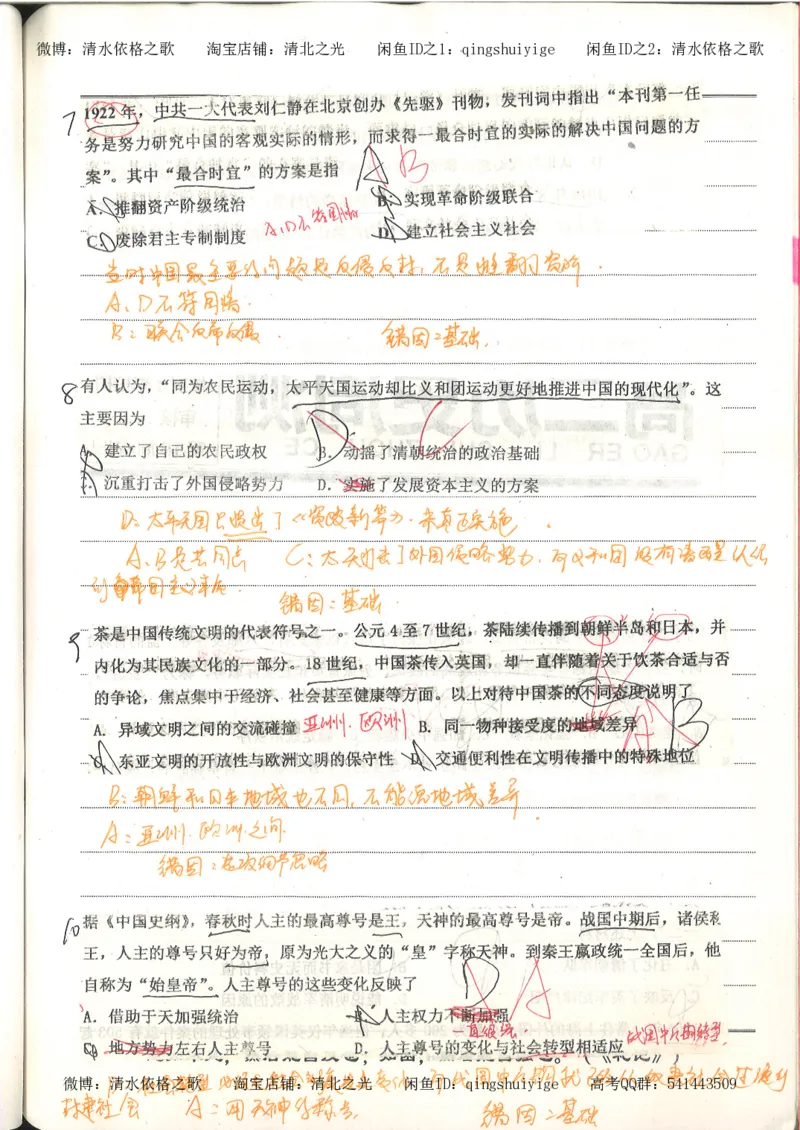 微博：清水依格之歌 淘宝店铺：清北之光 闲鱼ID之1：qingshuiyige 闲鱼ID之2：清水依格之歌
7 1922年，中共一大代表刘仁静在北京创办《先驱》刊物，发刊词中指出“本刊第一任
务是努力研究中国的客观实际的情形，而求得一最合时宜的实际的解决中国问题的方
案”。其中“最合时宜”的方案是指 A B
A. 推翻资产阶级统治 B. 实现革命阶级联合
C. 废除君主专制制度 A、D不符国情 D. 建立社会主义社会
当时中国最主要的问题是反帝反封，不是推翻资产
A、D不符国情
B：联合反帝反封 错因：基础
8 有人认为，“同为农民运动，太平天国运动却比义和团运动更好地推进中国的现代化”。这
主要因为 D C
A. 建立了自己的农民政权 B. 动摇了清朝统治的政治基础
沉重打击了外国侵略势力 D. 实施了发展资本主义的方案
D：太平天国只提出了《资政新篇》，未有已实施
A、B是共同点 C：太天打击了外国侵略势力，而义和团没有清晰认
错因：基础
9 茶是中国传统文明的代表符号之一。公元4至7世纪，茶陆续传播到朝鲜半岛和日本，并
内化为其民族文化的一部分。18世纪，中国茶传入英国，却一直伴随着关于饮茶合适与否
的争论，焦点集中于经济、社会甚至健康等方面。以上对待中国茶的不同态度说明了
A. 异域文明之间的交流碰撞 亚洲、欧洲 B. 同一物种接受度的地域差异 A B
C. 东亚文明的开放性与欧洲文明的保守性 D. 交通便利性在文明传播中的特殊地位
B：朝鲜和日本地域也不同，不能强地域差异
A：亚洲、欧洲之间
错因：
10 据《中国史纲》，春秋时人主的最高尊号是王，天神的最高尊号是帝。战国中期后，诸侯称
王，人主的尊号只好为帝，原为光大之义的“皇”字称天神。到秦王嬴政统一全国后，他
自称为“始皇帝”。人主尊号的这些变化反映了 D A
A. 借助于天加强统治 B. 人主权力不断加强
C. 地方势力左右人主尊号 D. 人主尊号的变化与社会转型相适应
微博：清水依格之歌 淘宝店铺：清北之光 闲鱼ID之1：qingshuiyige 高考QQ群：541443509
封建社会 A：用天神 错因：基础